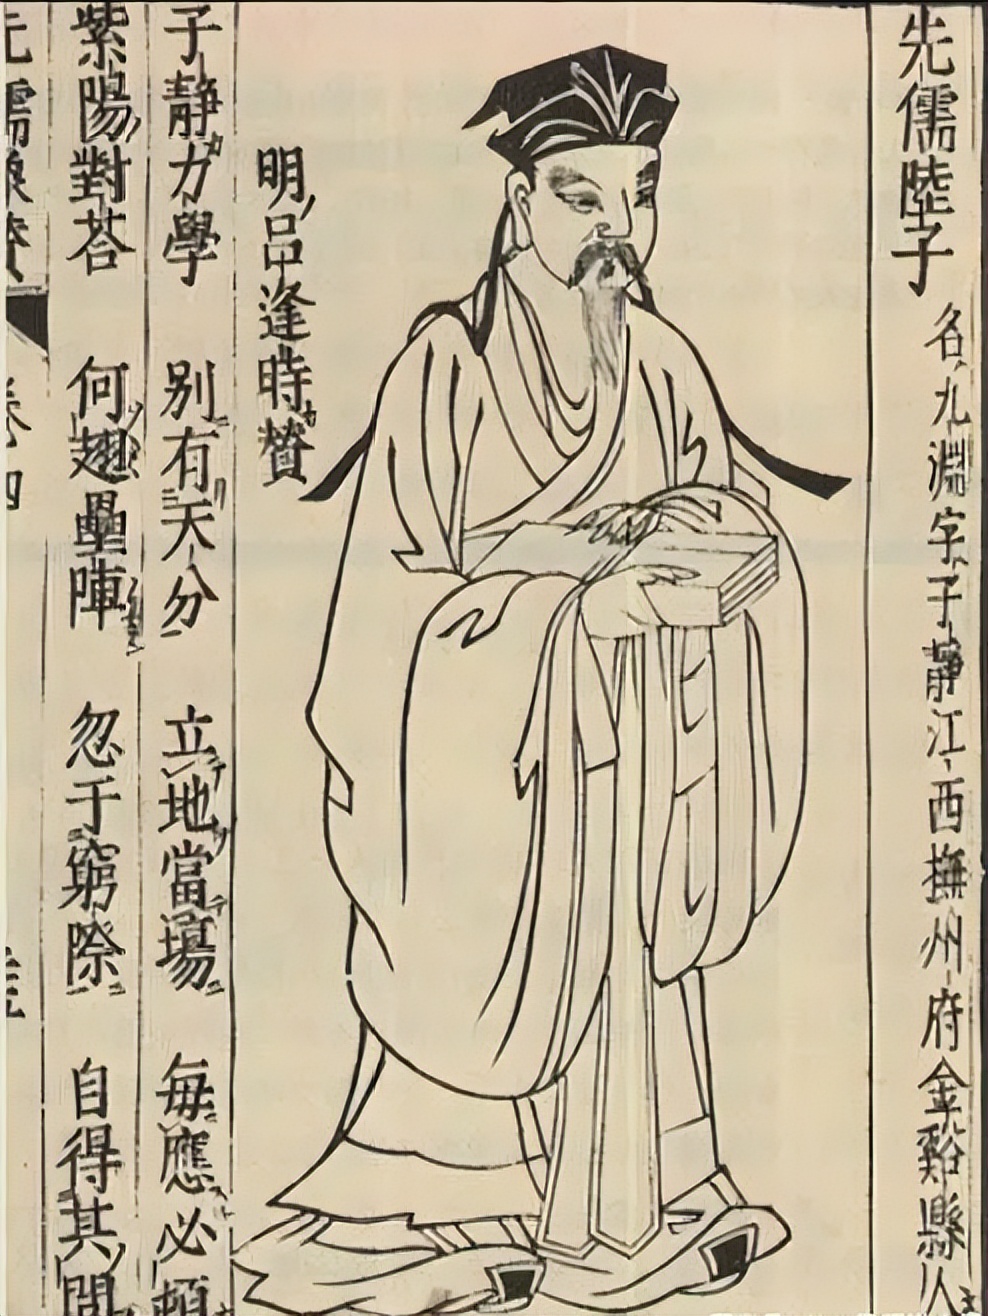 先儒陸子 名九淵字子靜江西撫州府金谿縣人
明呂逢時賛
子靜力學 别有天分 立地當場 每應必頓
紫陽對荅 何翅壘陣 忽于窮際 自得其